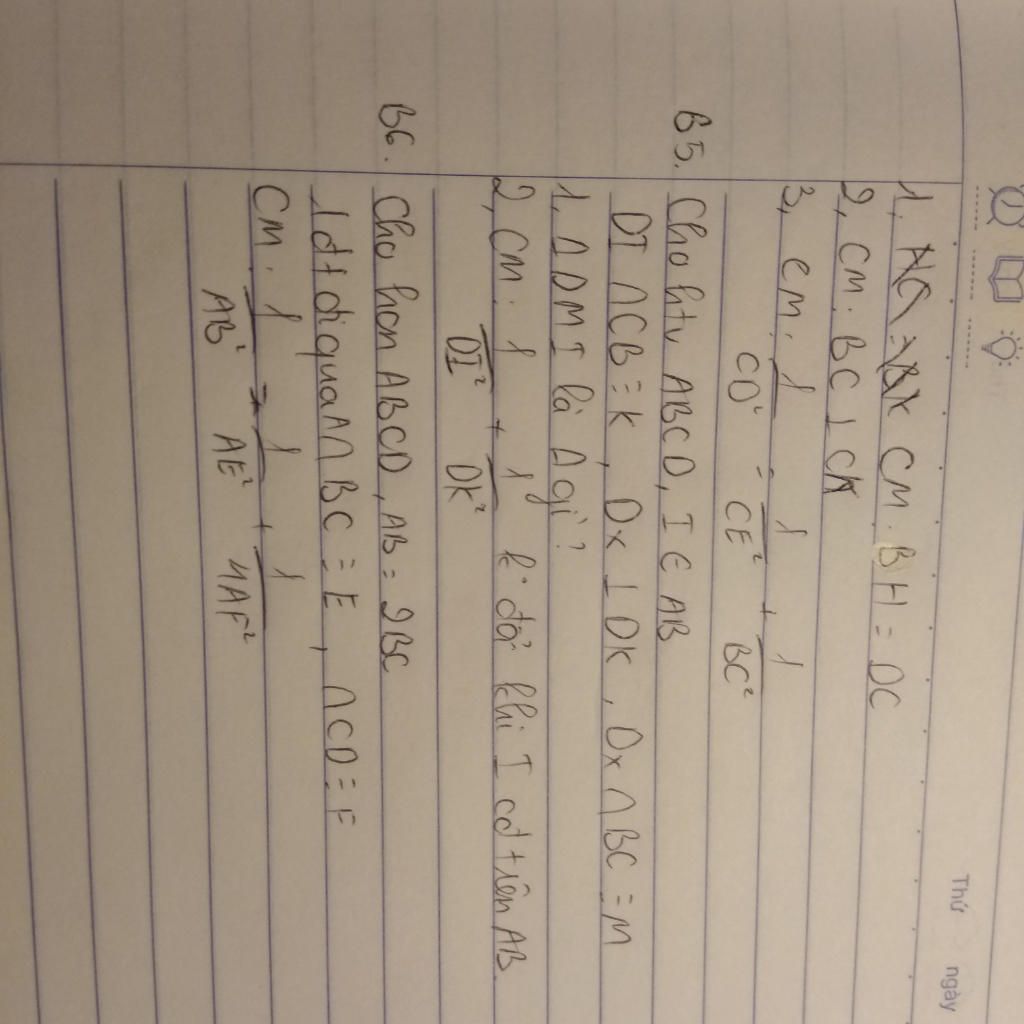 Thứ ngày
1, CM. BH = DC
2, CM. BC ⊥ CK
3, CM. 1/CD² = 1/CE² + 1/BC²
B5. Cho htv ABCD, I ∈ AB
DI ∩ CB ≡ K, Dx ⊥ DK, Dx ∩ BC = M
1, Δ DMI là Δ gì?
2, CM. 1/DI² + 1/DK² k° đổi khi I cđ trên AB.
B6. Cho hcn ABCD, AB = 2BC
1 đt đi qua A ∩ BC = E, ∩ CD = F
CM. 1/AB² = 1/AE² + 1/4AF²